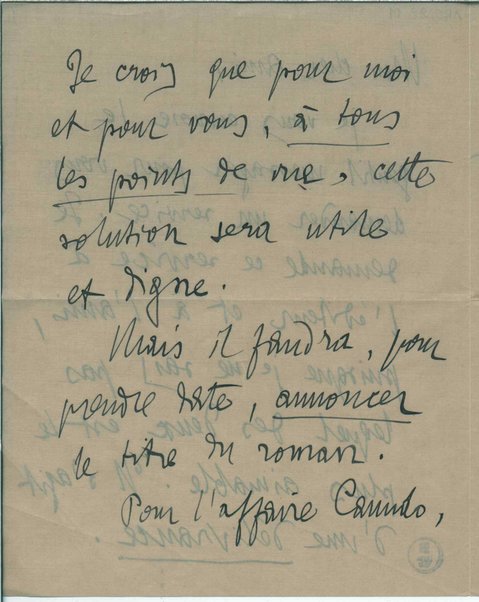 Je crois que pour moi
et pour vous, à tous
les points de vue, cette
solution sera utile
et digne.
Mais il faudra, pour
prendre date, annoncer
le titre du roman.
Pour l'affaire Canudo,